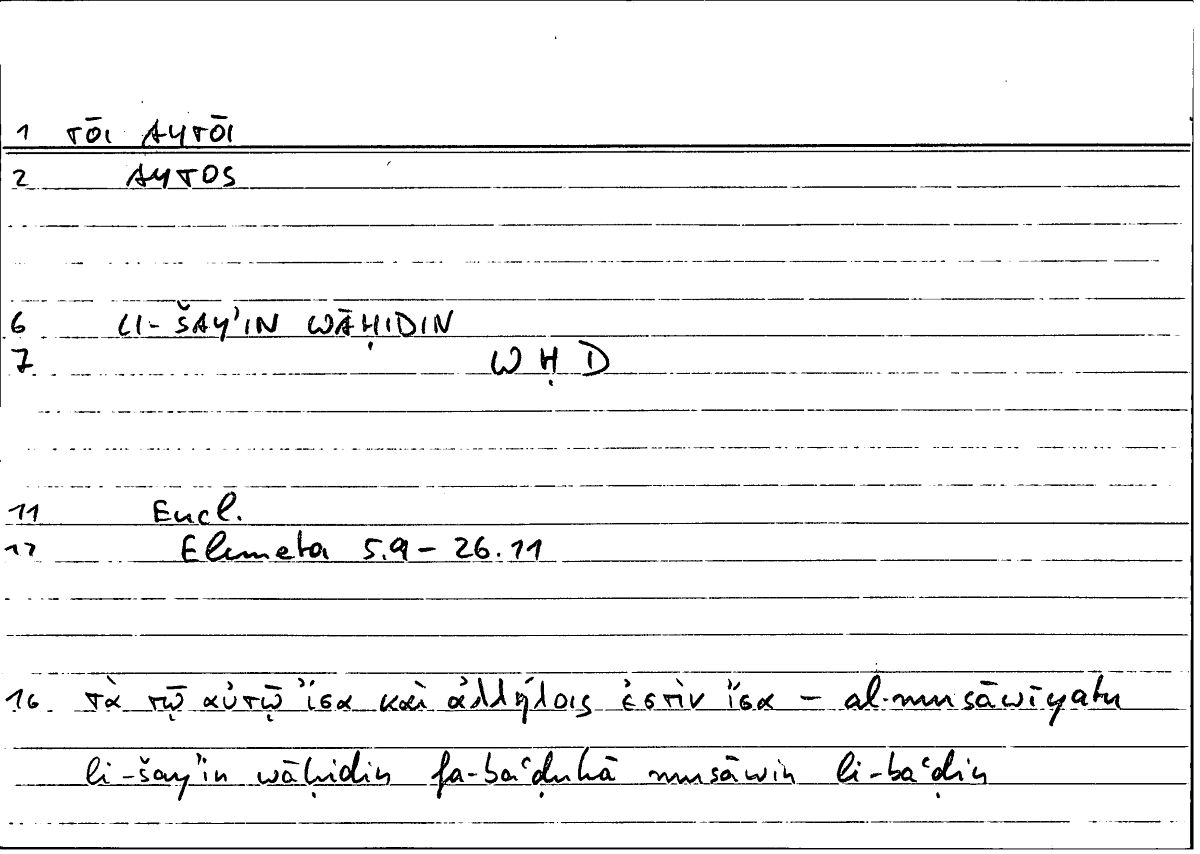 1 TŌI AYTŌI
2 AYTOS
6 LI-ŠAY'IN WĀḤIDIN
7 W Ḥ D
11 Eucl.
12 Elemeta 5.9 – 26.11
16 τὰ τῷ αὐτῷ ἴσα καὶ ἀλλήλοις ἐστὶν ἴσα – al-musāwīyatu
li-šay'in wāḥidin fa-baʿḍuhā musāwin li-baʿḍin